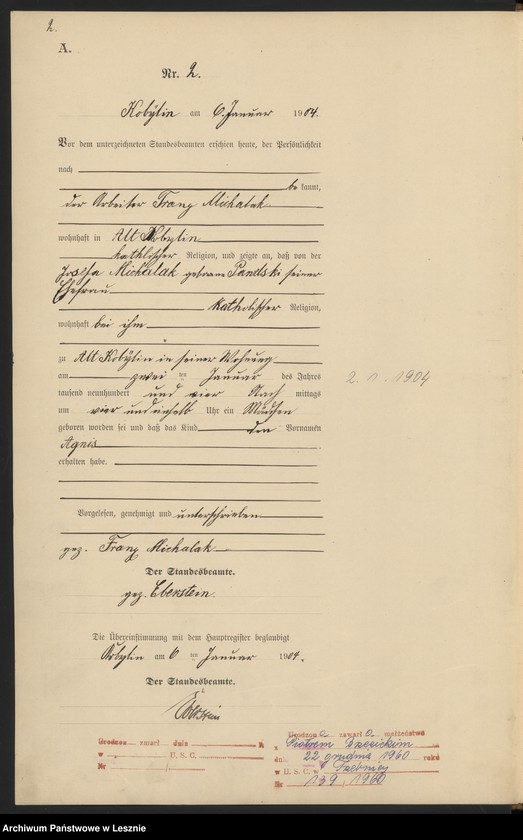 2.
A.
Nr. 2.
Kobylin am 6 Januar 1904.
Vor dem unterzeichneten Standesbeamten erschien heute, der Persönlichkeit
nach
bekannt,
der Arbeiter Franz Michalak
wohnhaft in Alt Kobylin
katholischer Religion, und zeigte an, daß von der
Josefa Michalak geborene seiner
Ehefrau
katholischer Religion,
wohnhaft bei ihm
zu Alt Kobylin in seiner Wohnung
am zwei ten Januar des Jahres
tausend neunhundert und vier Nach mittags
um vier und einhalb Uhr ein Mädchen
geboren worden sei und daß das Kind den Vornamen
Agnes
erhalten habe.
2. 1. 1904
Vorgelesen, genehmigt und unterschrieben
gez. Franz Michalak
Der Standesbeamte.
gez. Eberstein.
Die Übereinstimmung mit dem Hauptregister beglaubigt
Kobylin am 6 ten Januar 1904.
Der Standesbeamte.
Eberstein
Urodzon zwarł dnia R
w U. S. C.
Nr
Urodzona zawarła małżeństwo
z Piotrem
dn. 22 grudnia 1960 roku
w U. S. C. w
Nr 139/1960
Archiwum Państwowe w Lesznie